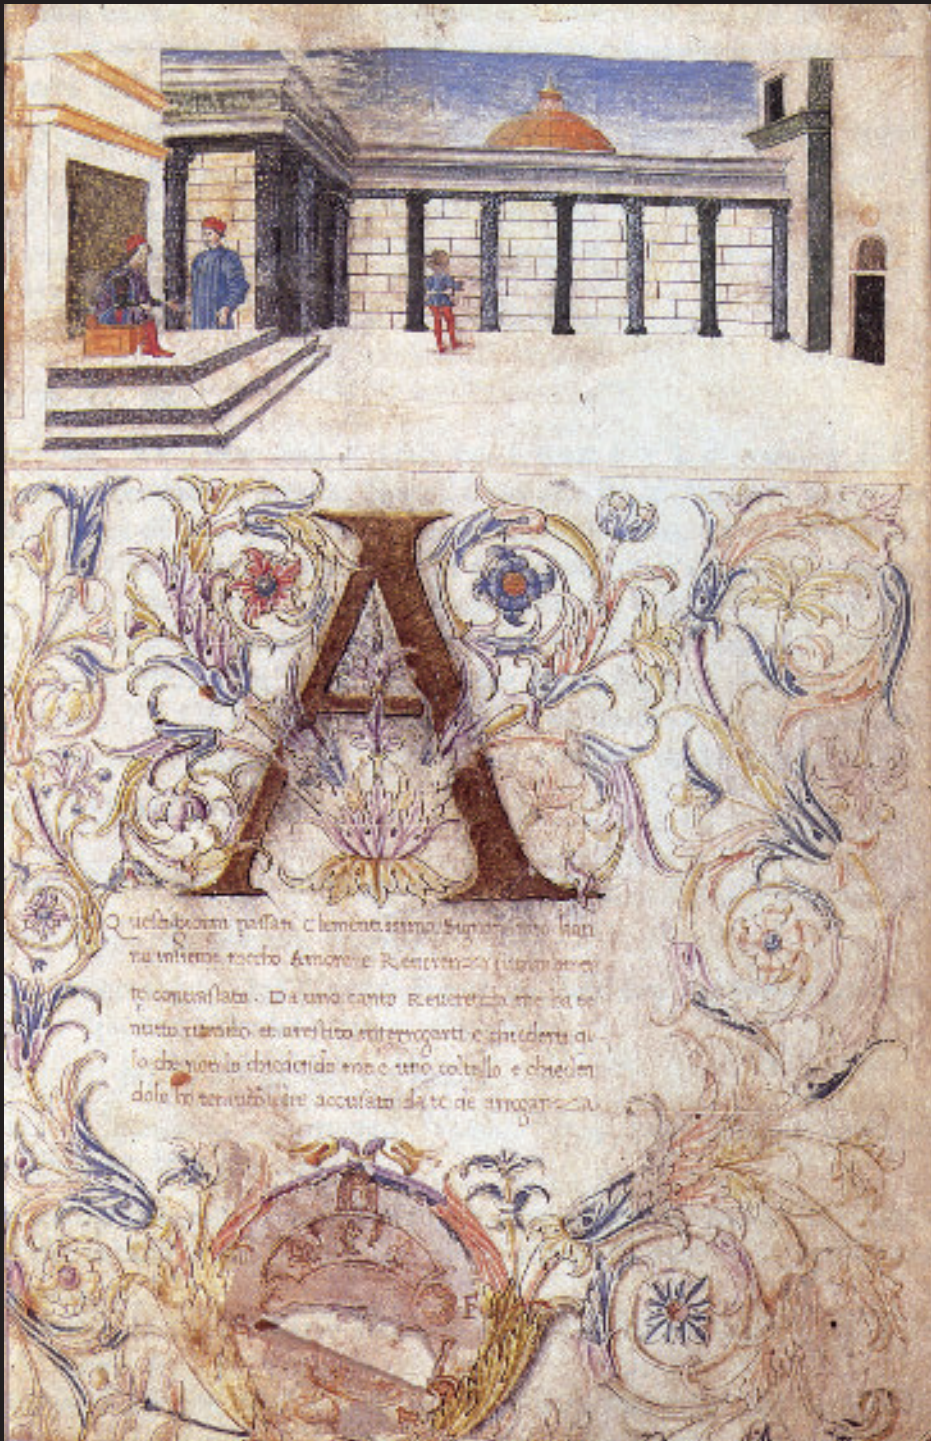 A
Questi giorni passati Clementissimo Signor mio han
no insieme meco Amore e Reverenza
te contrastato. Da uno canto Reverenza me ha te
nuto timido et interrogarti e chiederti al
lo che non lo chiedendo me e uno coltello e chieden
dolo ho temuto essere accusato da te de arroganza.
F